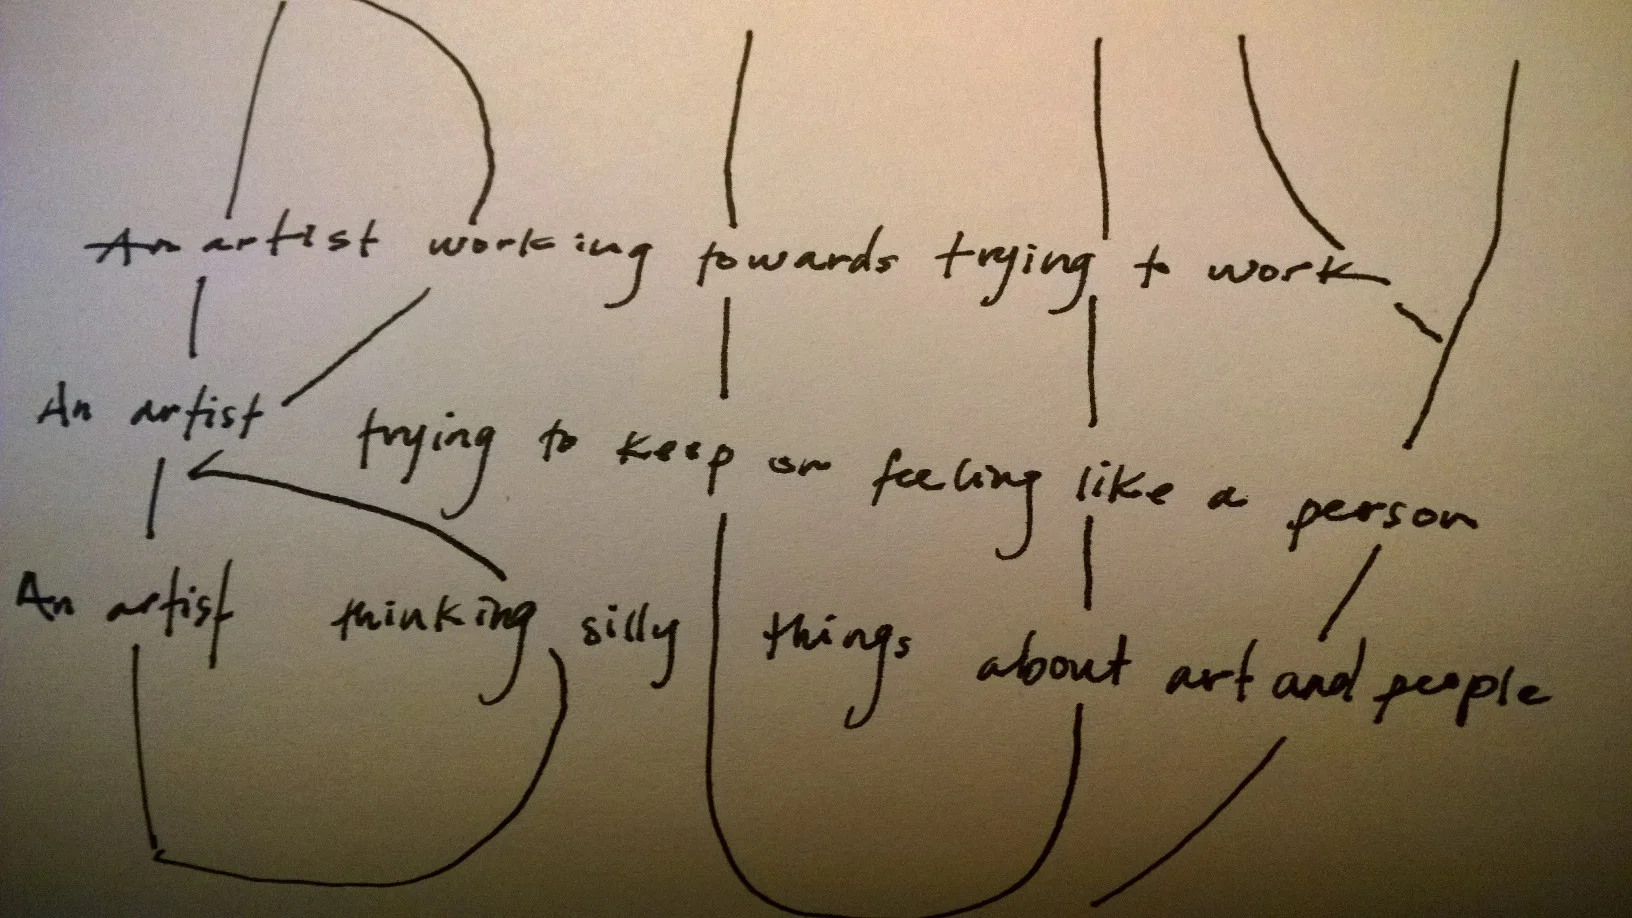 An artist working towards trying to work
An artist trying to keep on feeling like a person
An artist thinking silly things about art and people
BUY